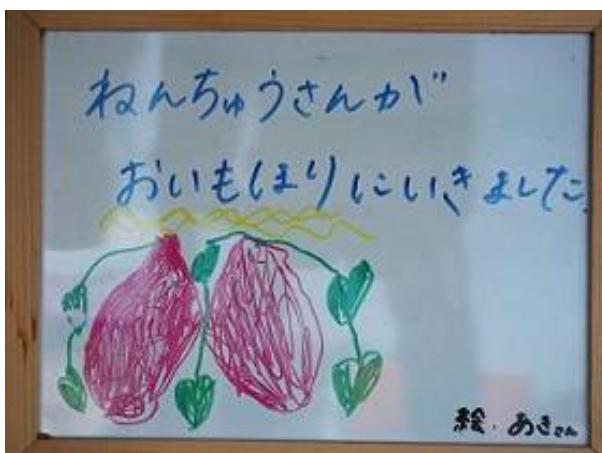 ねんちゅうさんが
おいもほりにいきました。
絵.あきさん